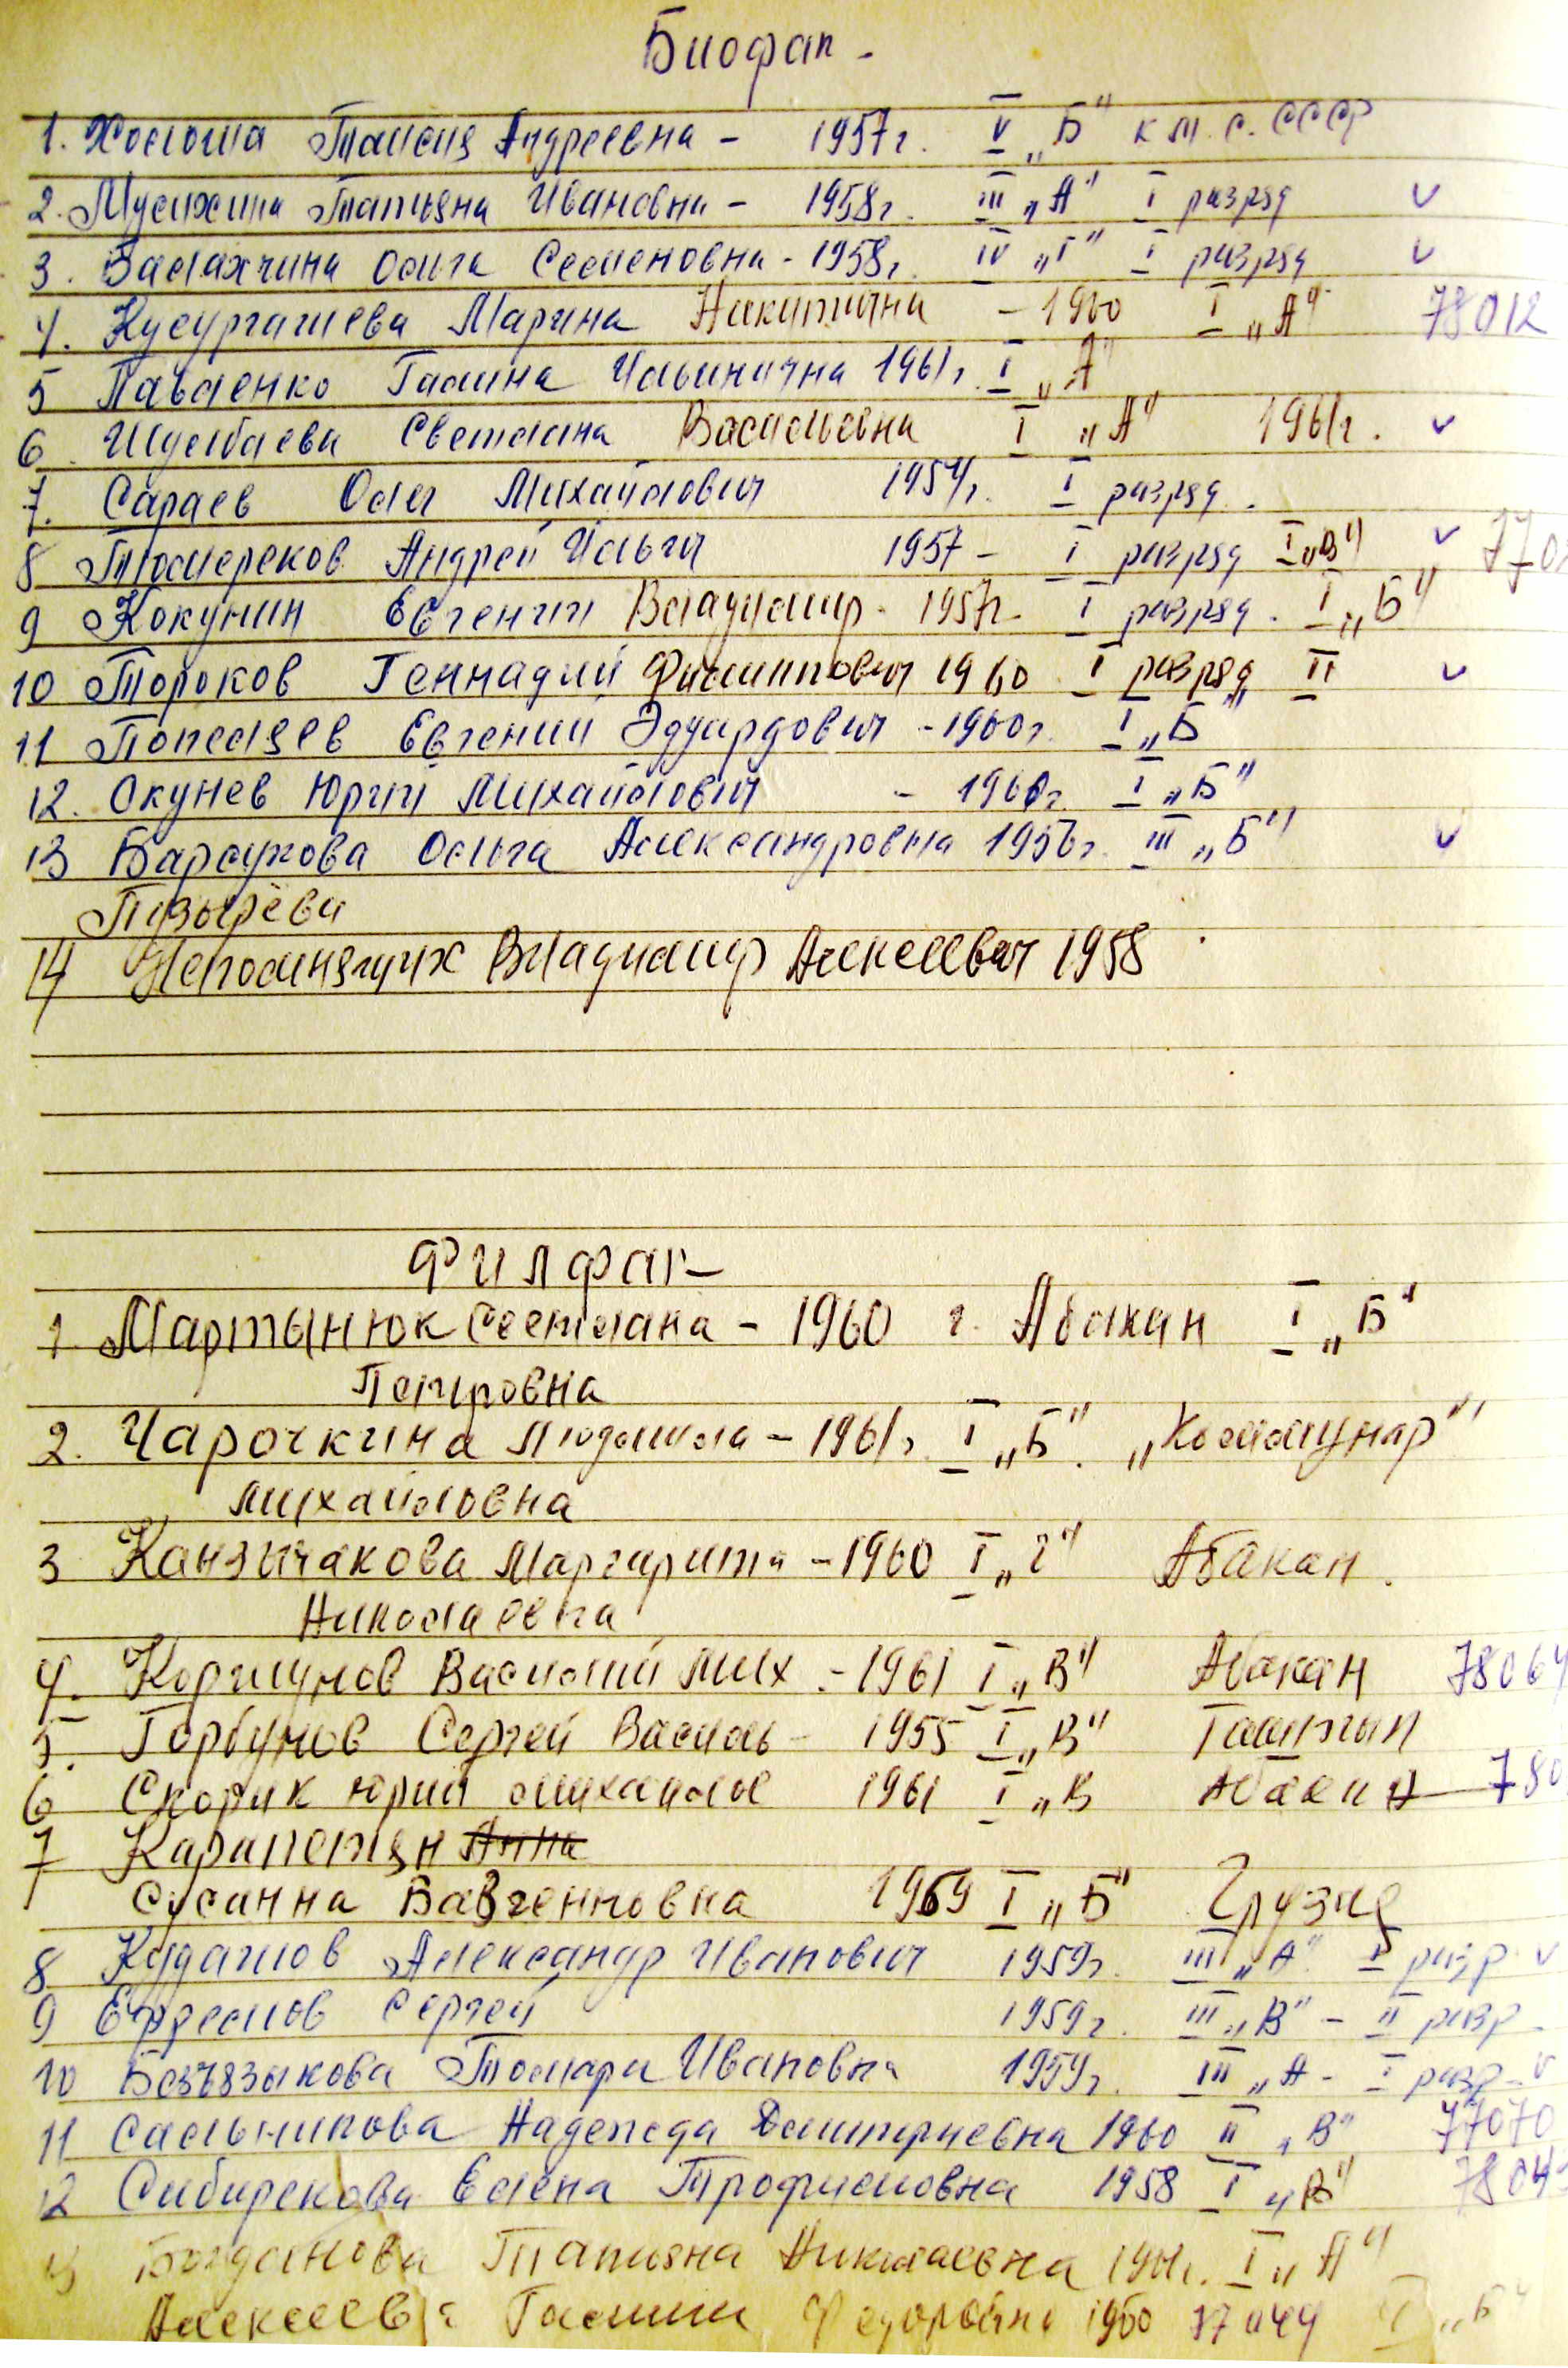 Биофак -
1. Холоша Таисия Андреевна - 1957г. V „Б" к.м.с. СССР
2. Мусихина Татьяна Ивановна - 1958г. III „А" I разряд v
3. Балахчина Ольга Семеновна - 1958г. IV „Г" I разряд v
4. Кусургашева Марина Никитична - 1960 I „А" 78012
5 Павленко Галина Ильинична 1961г. I „А"
6. Шулбаева Светлана Васильевна I „А" 1961г. v
7. Сараев Олег Михайлович 1954г. I разряд.
8 Тюмереков Андрей Ильич 1957 - I разряд I „В" v 770
9 Кокунин Евгений Владимир. 1957г. I разряд. I „Б"
10 Тороков Геннадий Филиппович 1960 I разряд II v
11 Попеляев Евгений Эдуардович - 1960г. I „Б"
12. Окунев Юрий Михайлович - 1960г. I „Б"
13 Барсукова Ольга Александровна 1956г. III „Б" v
Пузырёва
14 Непомнящих Владимир Алексеевич 1958
Филфак
1. Мартынюк Светлана - 1960 г. Абакан I „Б"
Петровна
2. Чарочкина Людмила - 1961г. I „Б". „Коммунар"
Михайловна
3 Канзычакова Маргарита - 1960 I „Г" Абакан.
Николаевна
4. Коршунов Василий Мих. - 1961 I „В" Абакан 78064
5. Горбунов Сергей Василь - 1955 I „В" Таштып
6 Скорик Юрий Михайлов 1961 I „В Абакан 780
7 Карапетян Анна
Сусанна Бавгеновна 1959 I „Б" Грузия
8 Кудашов Александр Иванович 1959г. III „А" I разр. v
9 Ефремов Сергей 1959г. III „В" - II разр -
10 Безъязыкова Томара Ивановна 1959г. III „А - I разр - v
11 Сальникова Надежда Дмитриевна 1960 II „В" 77070
12 Сибирекова Елена Трофимовна 1958 I „В" 7804
13 Богданова Татьяна Николаевна 1961г. I „А"
Алексеева Галина Федоровна 1960 77044 I „Б"